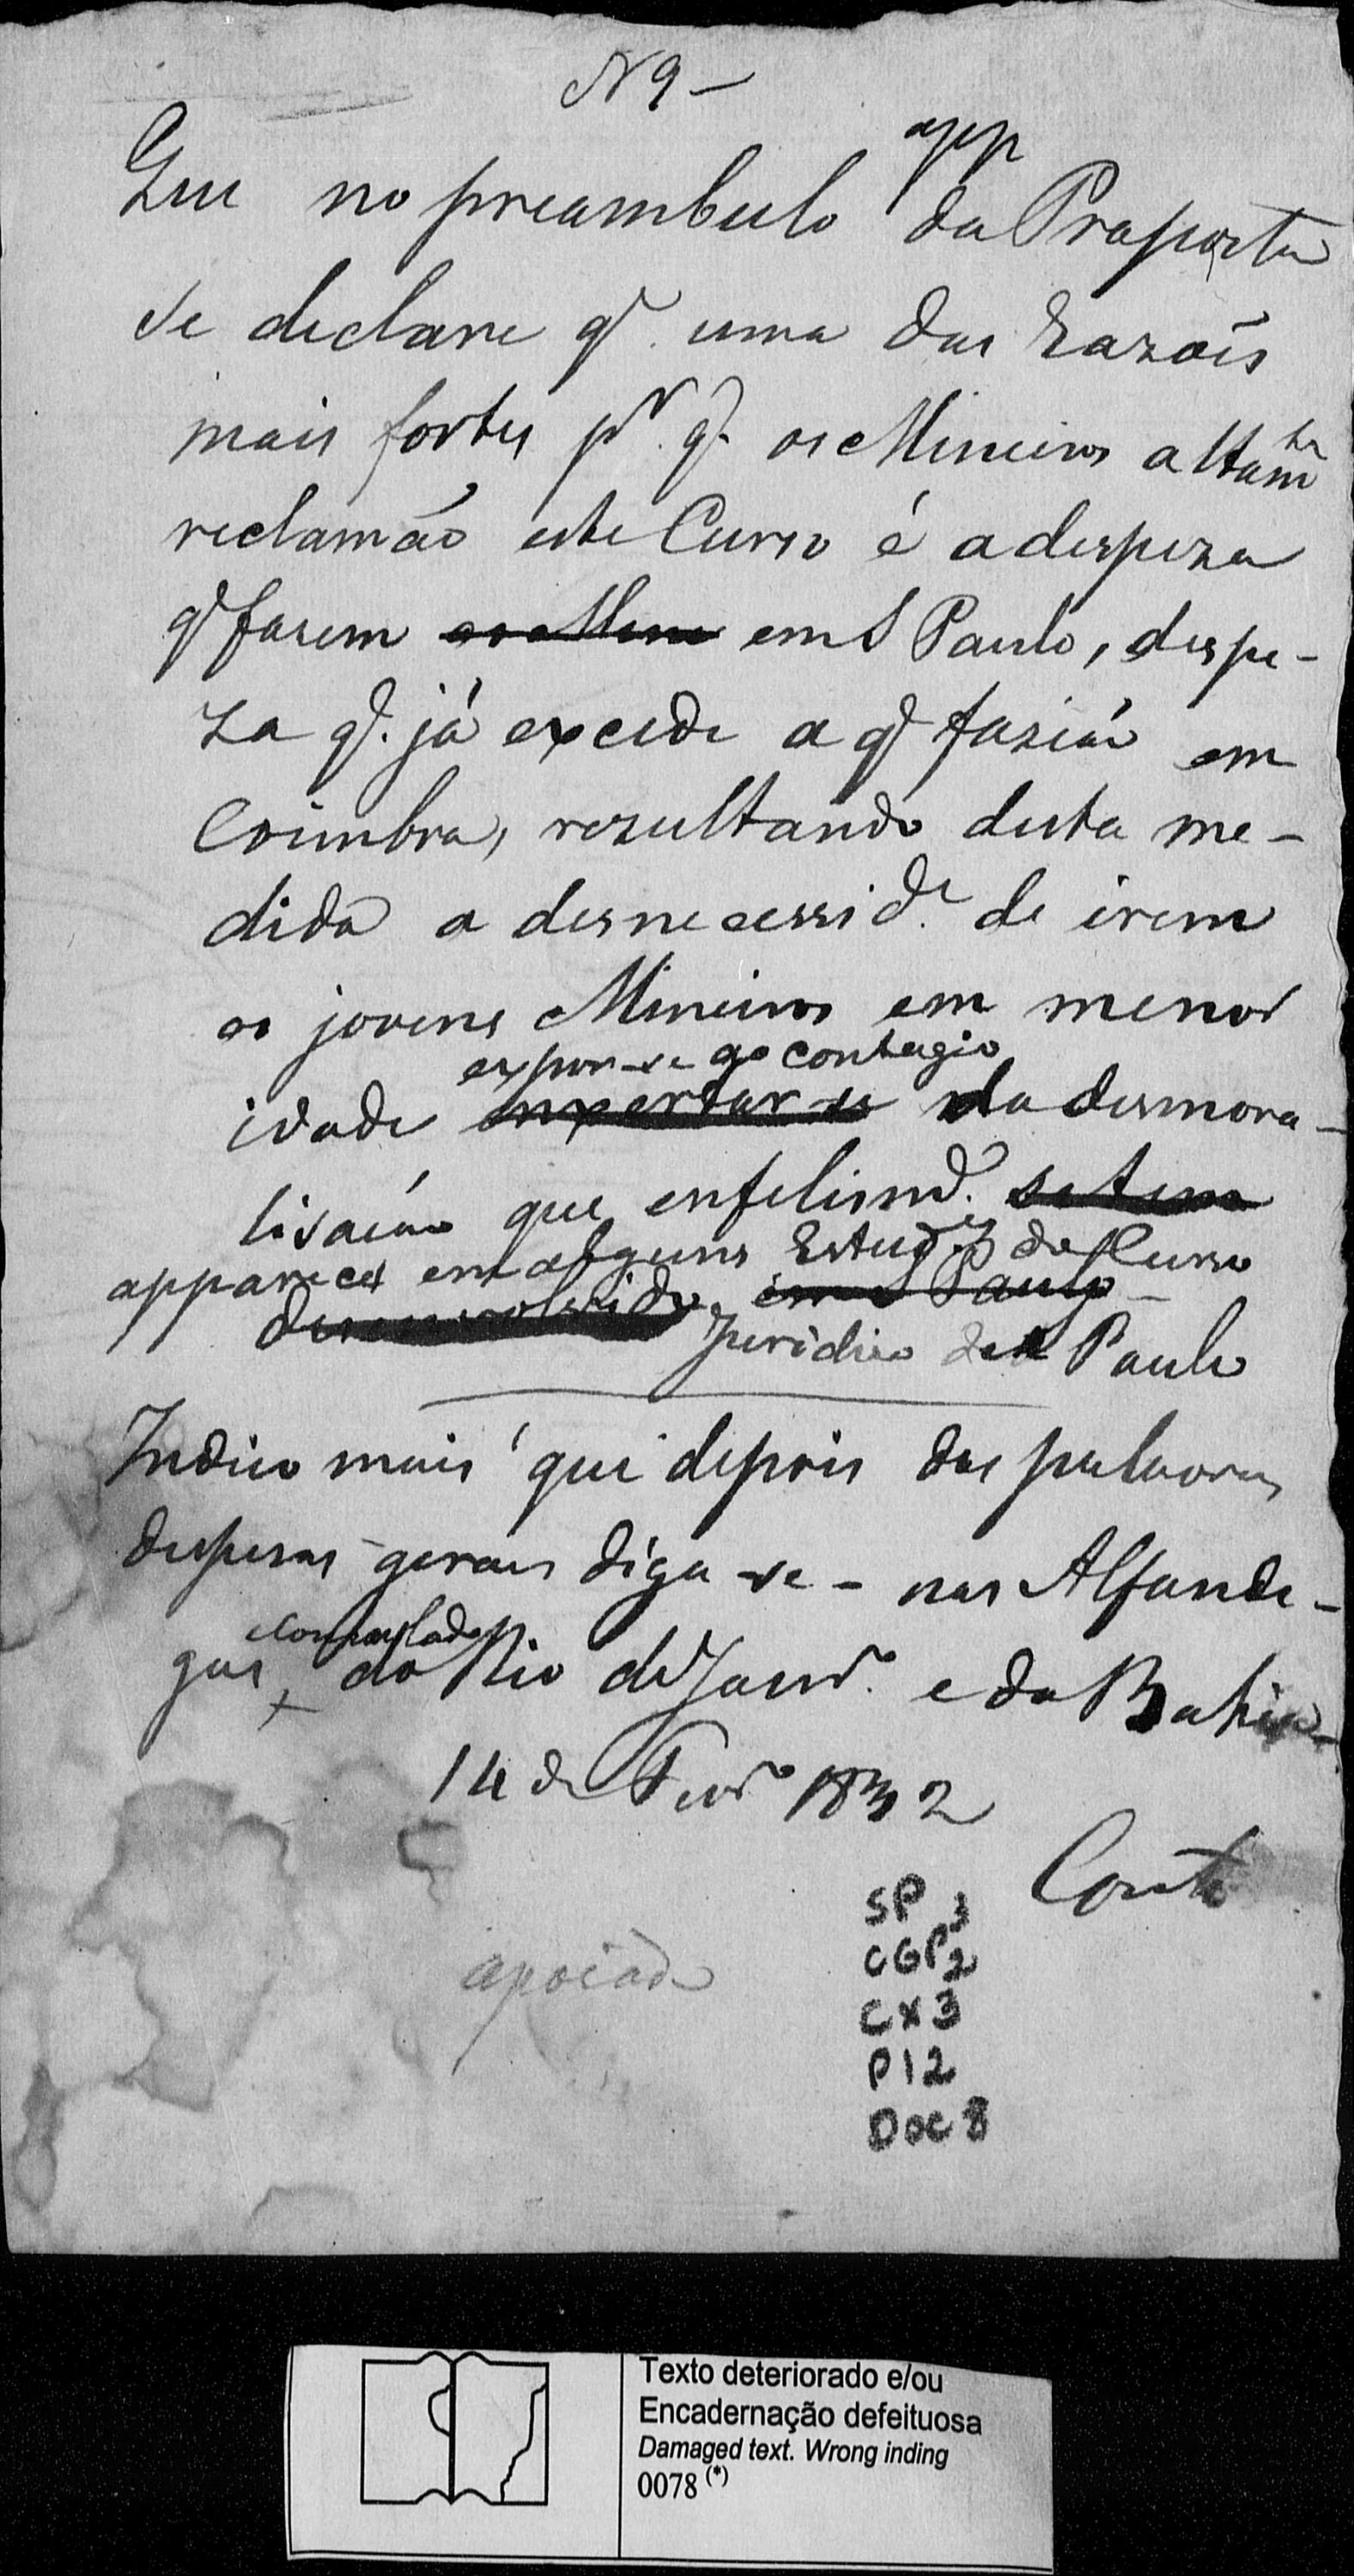 N 9 -
app
Que no preambulo da Proposta
se declare q. uma das razoẽs
mais fortes pr. q. os Mineiros altamte
reclamão este Curso é a despeza
q fasem os Mine em S Paulo, despe-
za q. já excede a q fasião em
Coimbra, resultando desta me-
dida a desnecesside. de irem
os jovens Mineiros em menor
expor-se ao contagio
idade da desmora-
lisacão que enfelismte. se tem
apparece em alguns Estudes do Curso
desenvolvido em S Paulo
Juridico de S Paulo
Indico mais que depois das palavras
despesas geraes diga-se - nas Alfande-
gas do Rio de Janro. e da Bahia -
14 de Fevro 1832
Costa
apoiado
SP 3
CGP 2
CX 3
P12
Doc 8
Texto deteriorado e/ou
Encadernação defeituosa
Damaged text. Wrong inding
0078 (*)